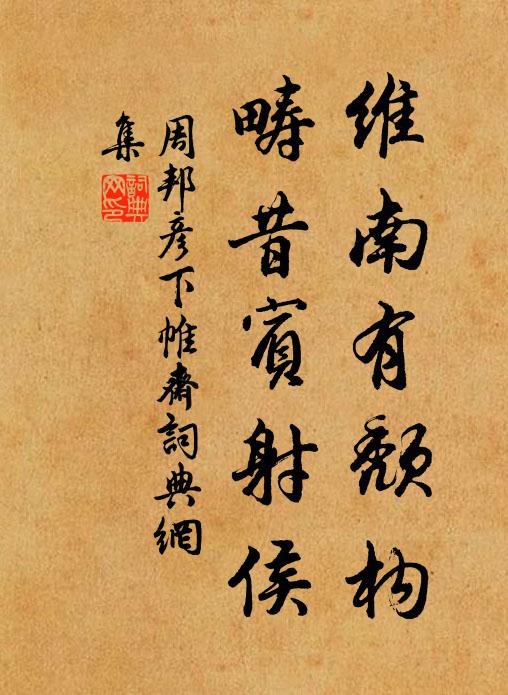 維南有頽构
疇昔賓射侯
周邦彥下帷齋詞典網
集
詞典网印